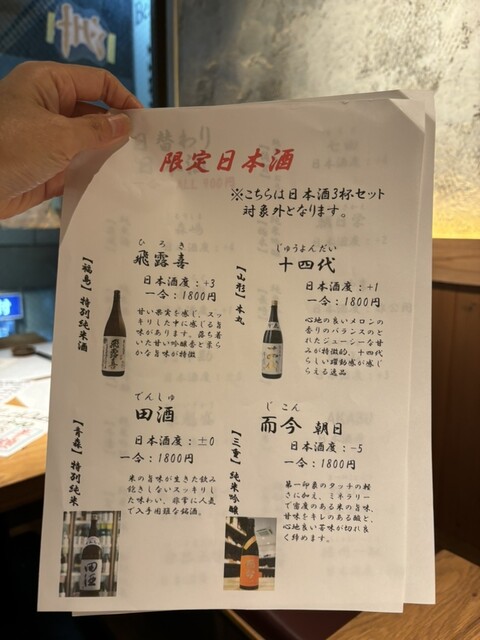 限定日本酒
※こちらは日本酒3杯セット
対象外となります。
【福島】特別純米酒
ひろき
飛露喜
日本酒度:+3
一合:1800円
甘い果実を感じ、スッ
キリした中に感じる旨
味があります。落ち着
いた甘い吟醸香と柔ら
かな旨味が特徴
【山形】本丸
じゅうよんだい
十四代
日本酒度:+1
一合:1800円
心地の良いメロンの
香りのバランスのと
れたジューシーな甘
みが特徴的、十四代
らしい躍動感が感じ
らえる逸品
【青森】特別純米
でんしゅ
田酒
日本酒度:±0
一合:1800円
米の旨味が生きた飲み
飽きしないスッキリし
た味わい、非常に人気
で入手困難な銘酒。
田酒
【三重】純米吟醸
じこん
而今 朝日
日本酒度:-5
一合:1800円
第一印象のタッチの軽
さに加え、ミネラリー
で密度のある米の旨味、
甘味をキレのある酸と、
心地良い苦味が切れ良
く締めます。